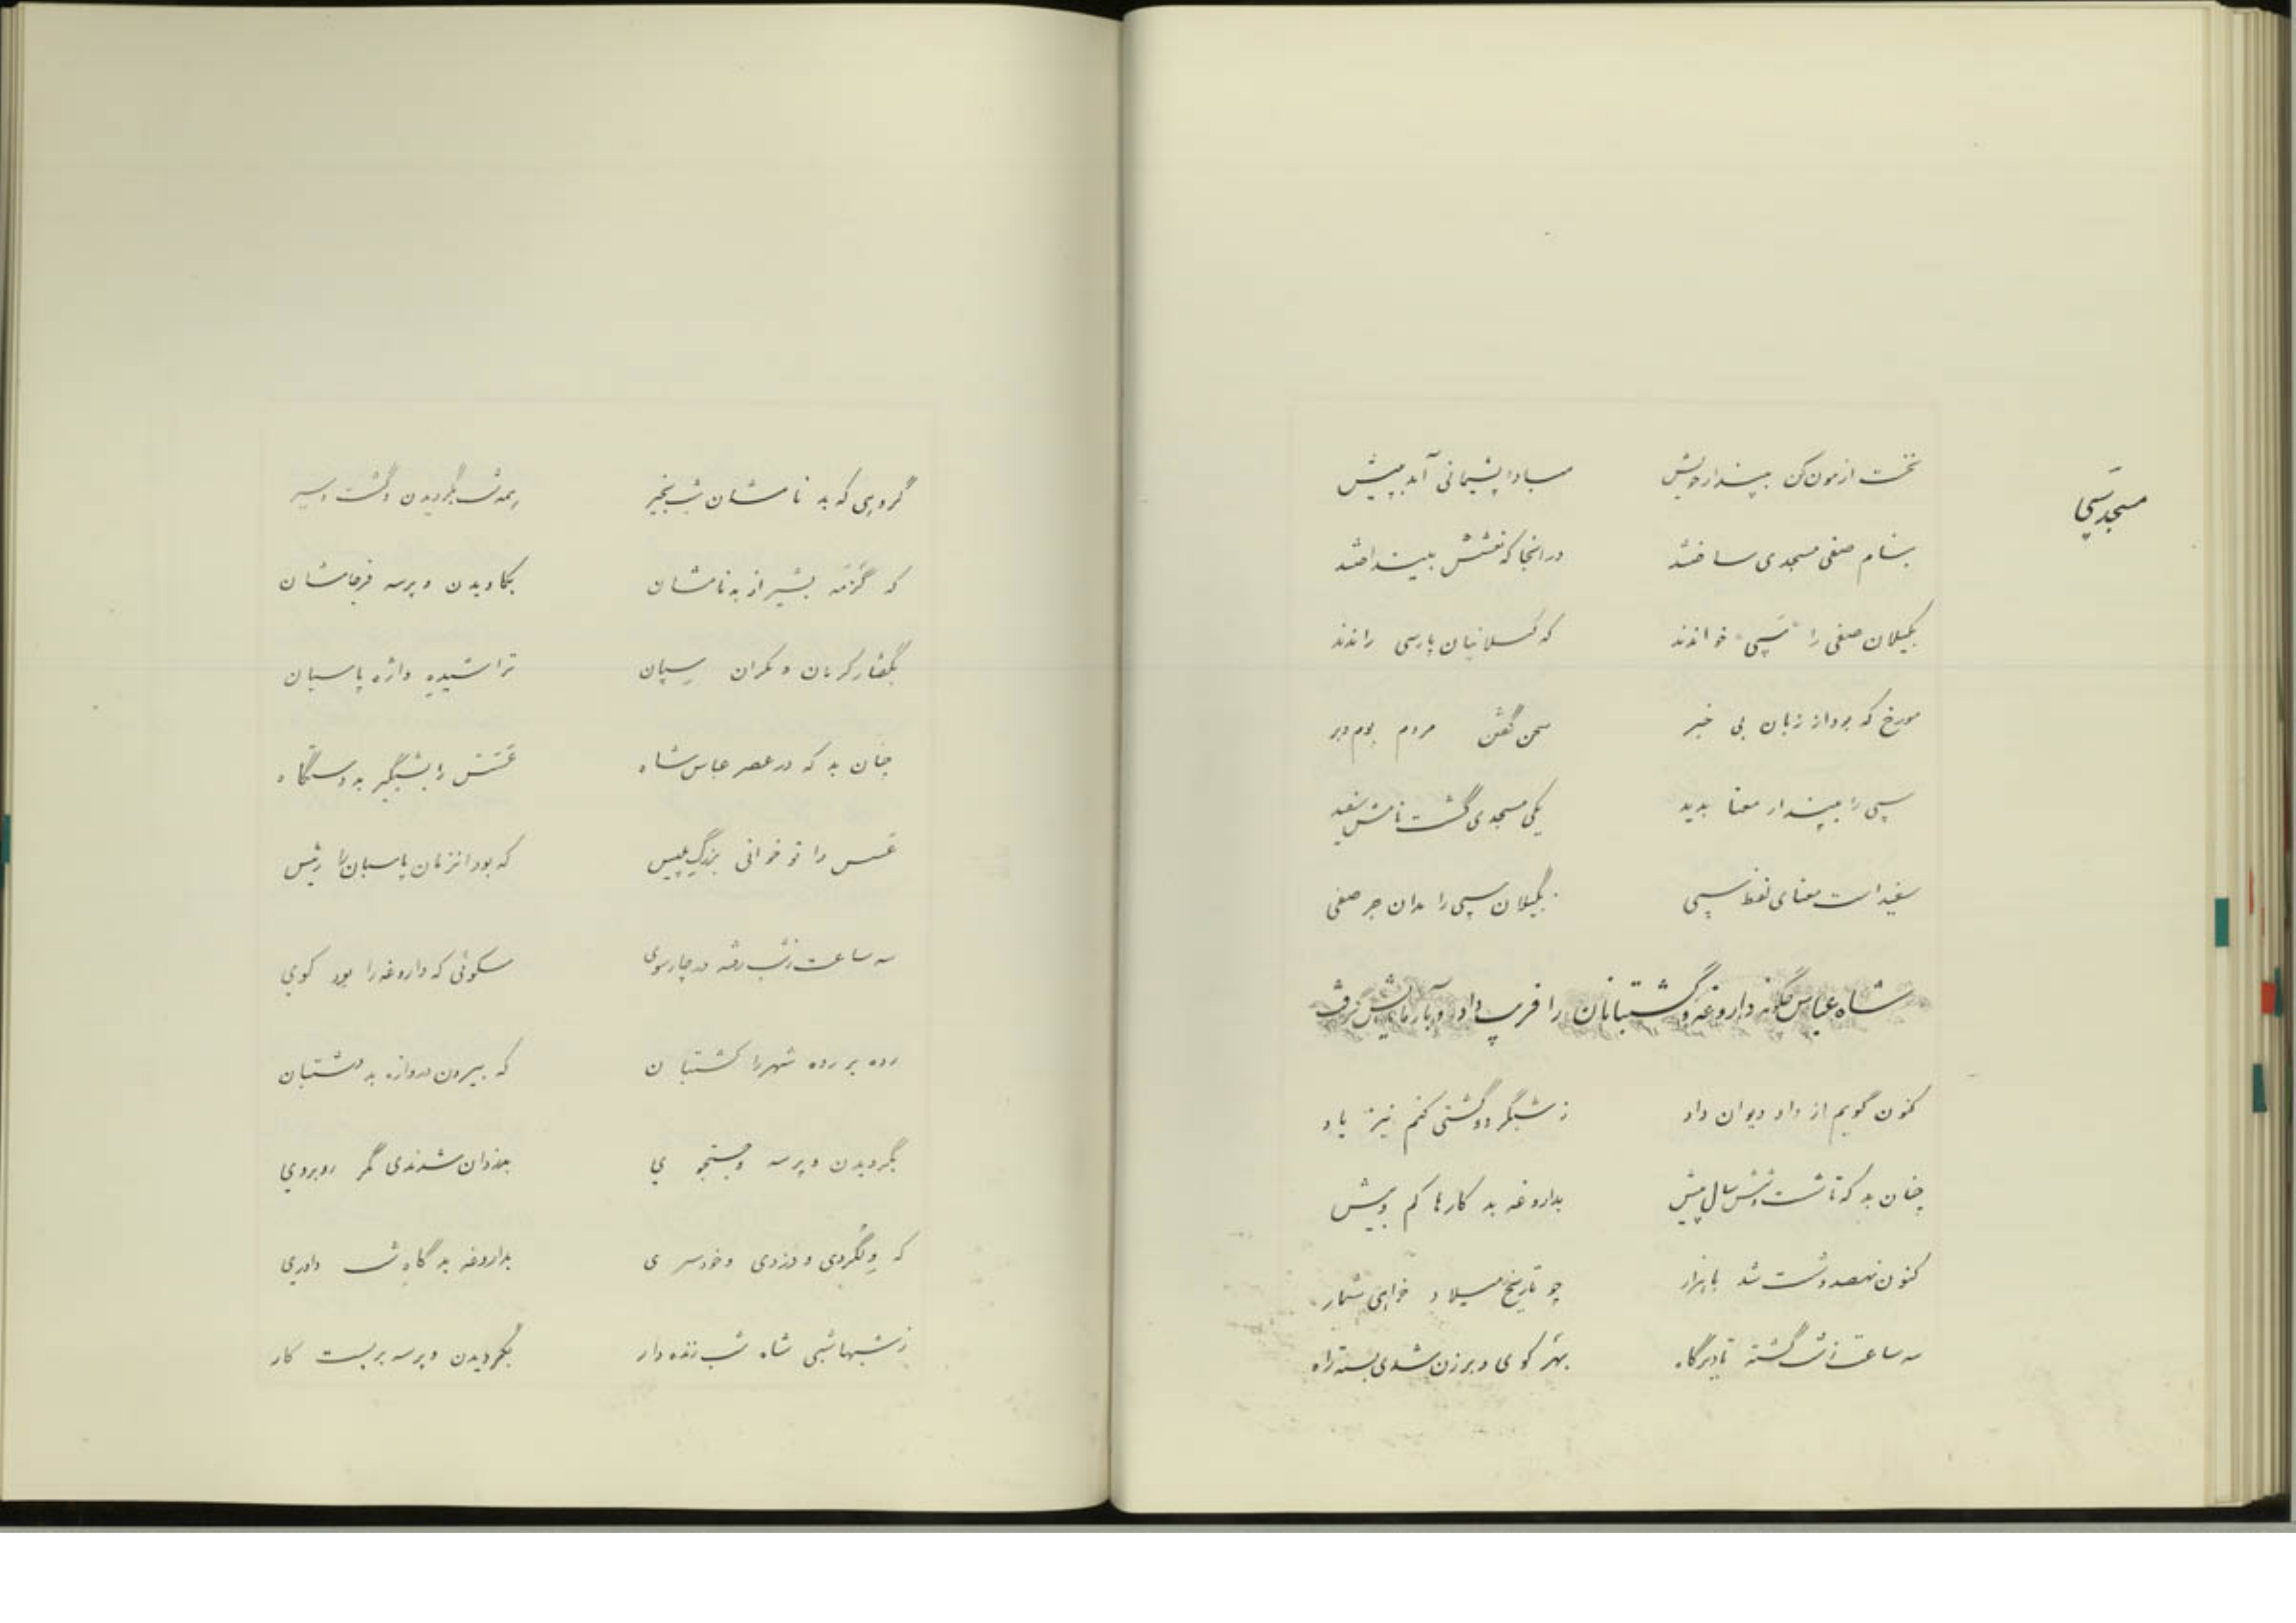 مسجد سَپی
نخست ازمون کن بپندار خویش مبادا پشیمانی آید بپیش
بنام صفی مسجدی ساختند در انجا که نعشش بینداختند
بگیلان صفی را "سَپی" خواندند که گسلانیان پارسی راندند
مورخ که بود از زبان بی خبر سخن گفتن مردم بوم وبر
سپی را بپندار معنا بدید یکی مسجدی گشت نامش سفید
سفید است معنای لفظ سپی بگیلان سپی را مدان جز صفی
شاه عباس چگونه داروغه و گشتبانان را فریب داد و بآزمایش گرفت
کنون گویم از داد دیوان داد ز شبگرد و گشتی کنم نیز یاد
چنان بد که تا شست و شش سال پیش بداروغه بد کارها کم و بیش
کنون نهصد و شست شد با هزار چو تاریخ میلاد خواهی شمار
سه ساعت ز شب گشته تا دیرگاه بهر کوی و برزن شدی بسته راه
گروهی که بد نامشان شبگیر همه شب بگردیدن و گشت و سیر
که گَزمَه بشیراز بد نامشان بکاویدن و پرسه فرجامشان
بگفتار کرمان و مکران سپان تراشیده واژه پاسبان
چنان بد که در عصر عباس شاه عَسَس را بشبگیر بد دستگاه
عَسس را تو خوانی بزرگ پلیس که بود انزمان پاسبان را رئیس
سه ساعت ز شب رفته در چارسوی سکوئی که داروغه را بود کوی
رده بر رده شهر را گشتبان که بیرون دروازه بد دشتبان
بگردیدن و پرسه و جستجوی بدزدان شدندی مگر روبروی
که وِلگردی و دزدی و خودسری بداروغه بد گاه شب داوری
ز شبها شبی شاه شب زنده دار بگردیدن و پرسه بر بست کار